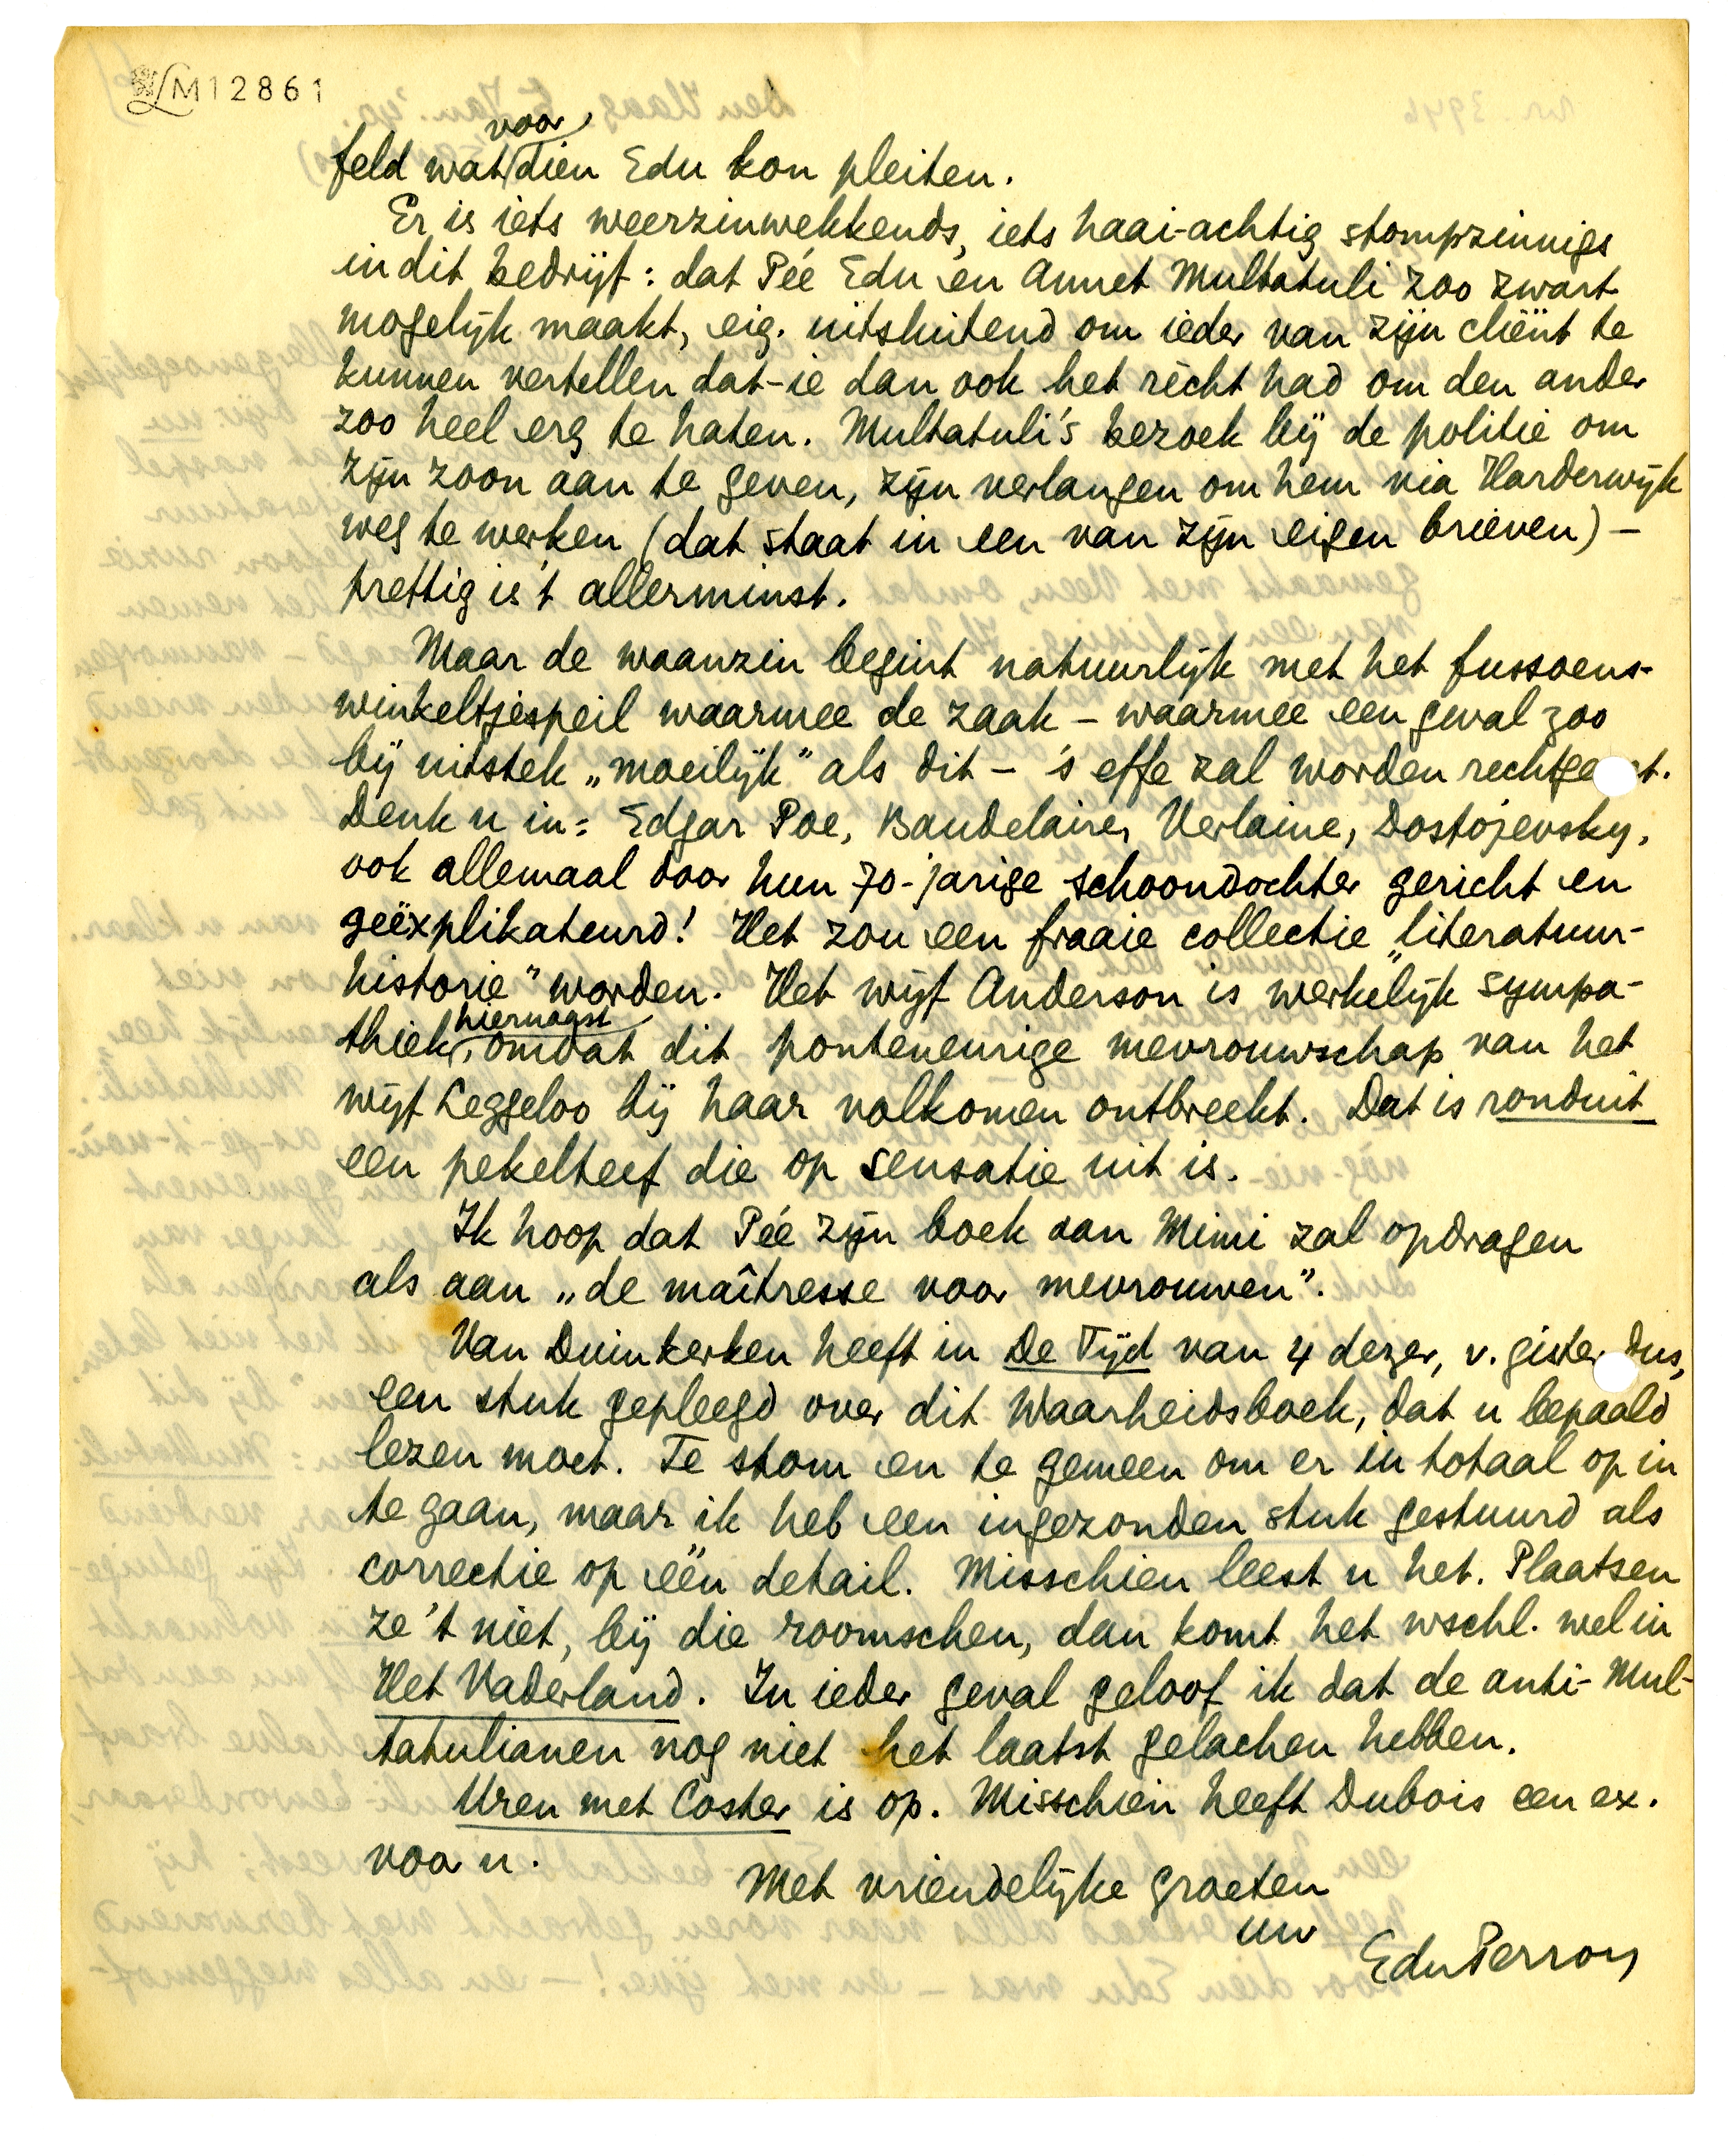 LM12861
feld wat voor dien Edu kon pleiten.
Er is iets weerzinwekkends, iets haai-achtig stompzinnigs
in dit bedrijf: dat Pée Edu èn Annet Multatuli zoo zwart
mogelijk maakt, eig. uitsluitend om ieder van zijn cliënt te
kunnen vertellen dat-ie dan ook het rècht had om den ander
zoo heel erg te haten. Multatuli's bezoek bij de politie om
zijn zoon aan te geven, zijn verlangen om hem via Harderwijk
weg te werken (dat staat in een van zijn eigen brieven) –
prettig is 't allerminst.
Maar de waanzin begint natuurlijk met het fussoens-
winkeltjespeil waarmee de zaak – waarmee een geval zoo
bij uitstek „moeilijk" als dit – 's effe zal worden rechtge t.
Denk u in: Edgar Poe, Baudelaire, Verlaine, Dostojevsky,
ook allemaal door hun 70-jarige schoondochter gericht en
geëxplikateurd! Het zou een fraaie collectie „literatuur-
historie" worden. Het wijf Anderson is werkelijk sympa-
thiek hiernaast, omdat dit ponteneurige mevrouwschap van het
wijf Leggeloo bij haar volkomen ontbreekt. Dat is ronduit
een pekelteef die op sensatie uit is.
Ik hoop dat Pée zijn boek aan Mimi zal opdragen
als aan „de maîtresse voor mevrouwen".
Van Duinkerken heeft in De Tijd van 4 dezer, v. gister dus,
een stuk gepleegd over dit Waarheidsboek, dat u bepaald
lezen moet. Te stom en te gemeen om er in totaal op in
te gaan, maar ik heb een ingezonden stuk gestuurd als
correctie op één detail. Misschien leest u het. Plaatsen
ze 't niet, bij die roomschen, dan komt het wschl. wel in
Het Vaderland. In ieder geval geloof ik dat de anti-Mul-
tatulianen nog niet het laatst gelachen hebben.
Uren met Coster is op. Misschien heeft Dubois een ex.
voor u.
Met vriendelijke groeten
uw
EduPerron